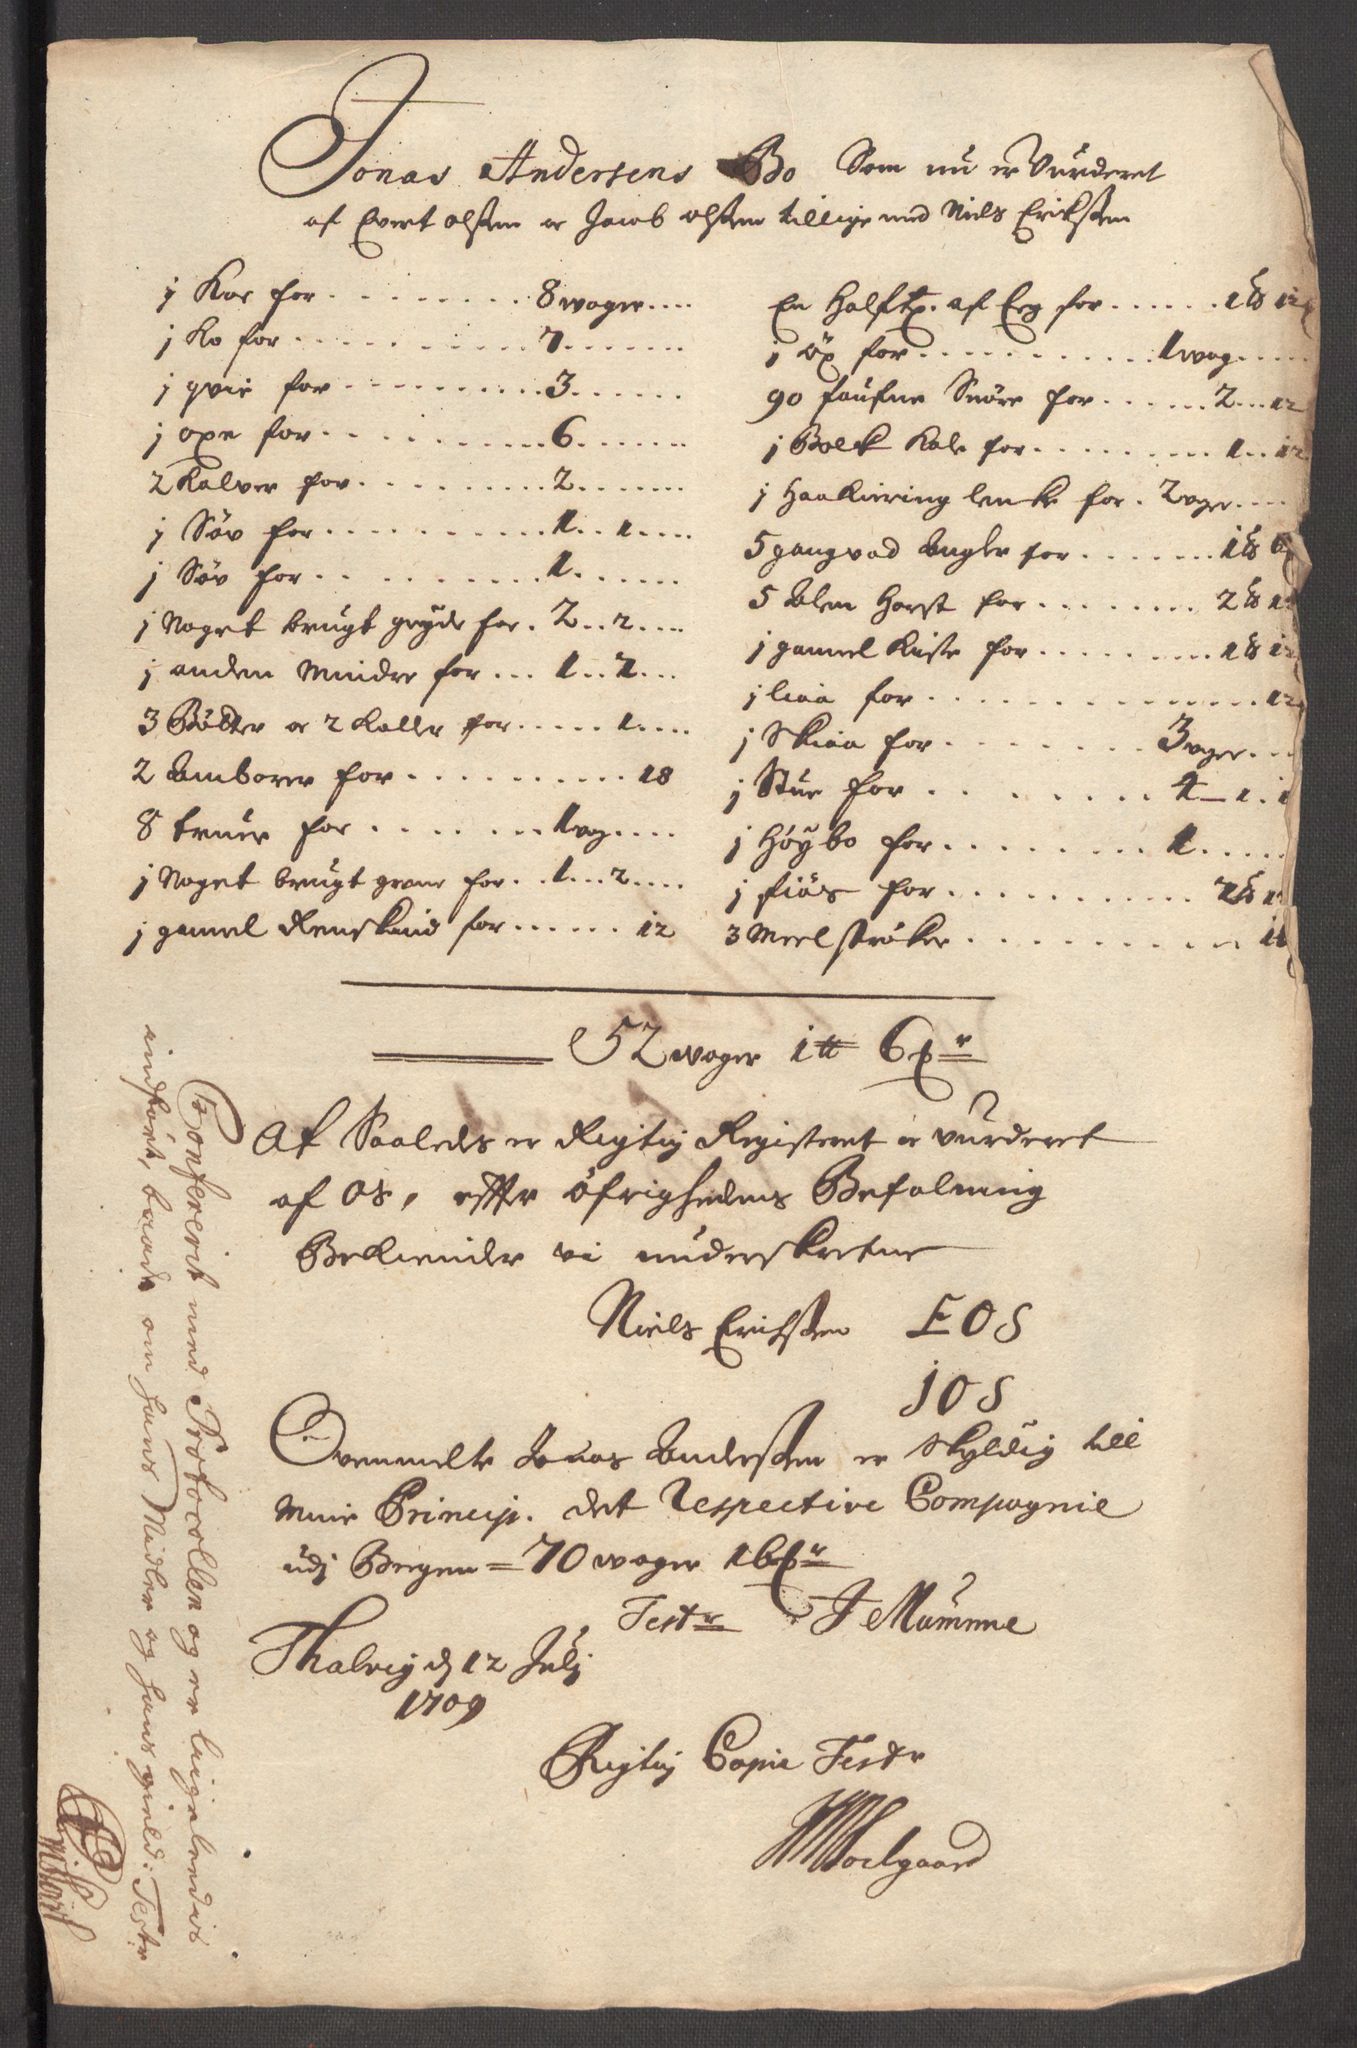 Jonas Andersens Bo Som nu er Vurderet
af Evert olssen oc Jacob olssen tillige med Niels Erichssen
j Koe for 8 woger
j Ko for 7
j qvie for 3
j oxe for 6
2 Kalver for 2
j Söv for 1 1
j Söv for 1
j Noget brugt gryde for 2 2
j anden Mindre for 1 1
3 Bötter oc 2 Koller for 1
2 Amborer for 18
8 truer for 1 wog
j Noget brugt grene for 1 2
j gamel Renskind for 12
En Half tp. af Eeg for 1 ℔ 12
j öx for 1 wog
90 faufne Snöre for 2 12
j Balk Kale for 1 12
j Haakiering lenke for 2 wger
5 gangvad Angler for 1 ℔ 6
5 Alen Harst for 2 ℔
j gamel Kiste for 1 ℔ 12
j liaa for 12
j Skiaa for 3 wger
j Stue for 4 1
j Höybo for 1
j fiös for 2 ℔
3 Meel ströker
52 woger 1 ℔ 6 ꝑr
At Saaledes er Rigtig Registeret oc vurderet
af os, effter öfrighedens Befalning
Bekiender vi underskrefne
Niels Erichssen EOS
JOS
Ovenmelte Jonas Anderssen er skyldig till
Mine Princip. det Respective Compagnie
udj Bergen = 70 woger 16 ꝑr
Testr J Mumme
Thalvig d 12 Julj
1709
Rigtig Copie Testr
Soelgaard
Confererit med Protocollen og er ligelendis
indfört, baade om hans Midler og hans gield: Testr